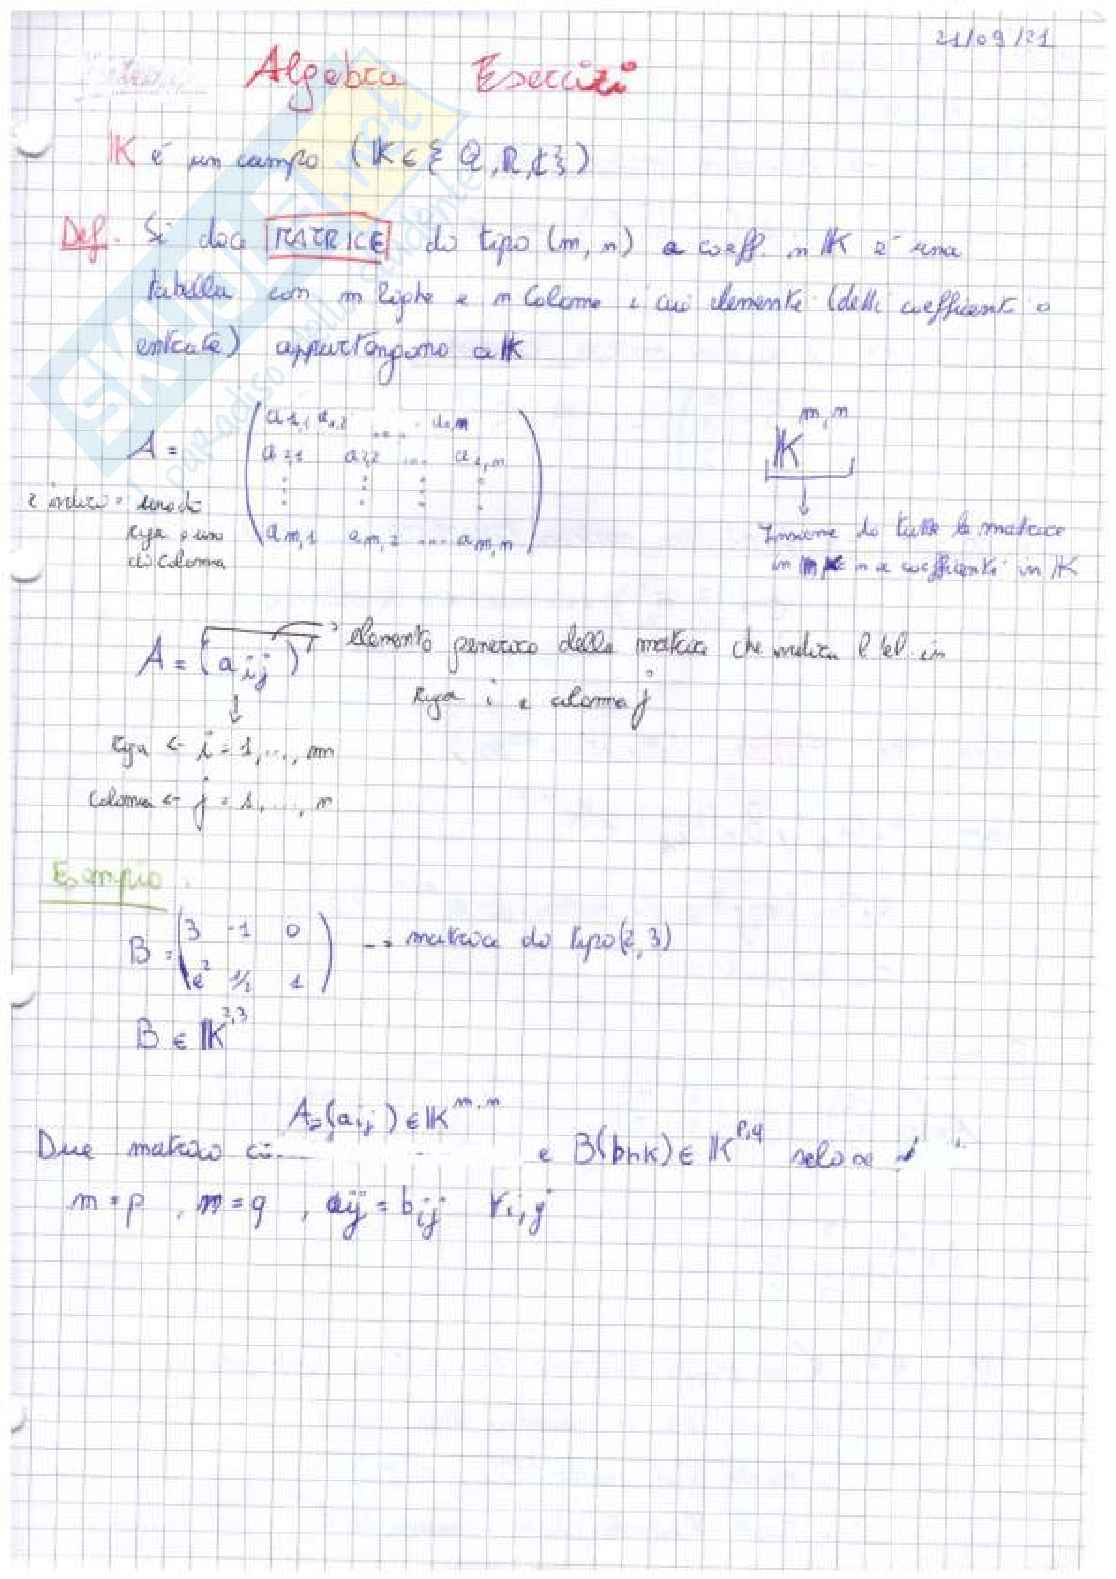 21/09/21
Algebra Esercizi
K é un campo (K ∈ { Q, R, C })
Def. Si dice MATRICE di tipo (m, n) a coeff. in K è una
tabella con m righe e n colonne i cui elementi (detti coefficienti o
entrate) appartengono a K
A = ( a1,1 a1,2 .... a1,n
a2,1 a2,2 .... a2,n
⋮ ⋮ ⋮ ⋮
am,1 am,2 .... am,n )
2 indici = uno di
riga e uno
di colonna
K^m,n
↓
Insieme di tutte le matrici
in n a coefficienti in K
A = (aij) → elemento generico della matrice che indica l'el. in
riga i e colonna j
↓
riga <- i = 1, ..., m
colonna <- j = 1, ..., n
Esempio.
B = ( 3 -1 0
e² 1/2 1 ) → matrice di tipo (2, 3)
B ∈ K^2,3
A=(aij) ∈ K^m,n
Due matrici e B(bhk) ∈ K^p,q
m = p , n = q , aij = bij ∀i,j
SKUOLA.net